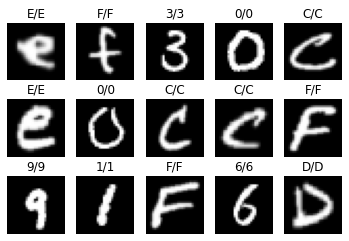 E/E F/F 3/3 0/0 C/C
e f 3 0 C
E/E 0/0 C/C C/C F/F
e 0 C C F
9/9 1/1 F/F 6/6 D/D
9 1 F 6 D